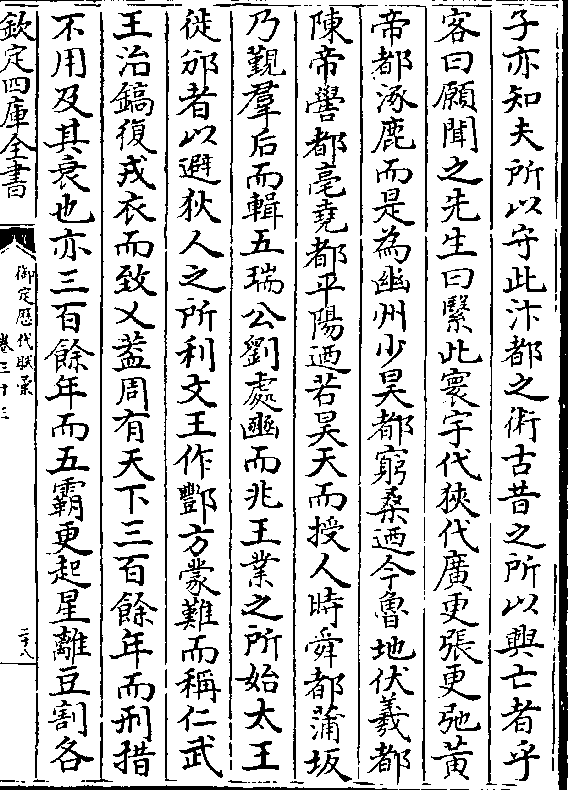 子亦知夫所以守此汴都之術古昔之所以興亡者乎
客曰願聞之先生曰繄此寰宇代狹代廣更張更弛黃
帝都涿鹿而是為幽州少昊都窮桑迺今魯地伏羲都
陳帝嚳都亳堯都平陽迺若昊天而授人時舜都蒲坂
乃覲羣后而輯五瑞公劉處豳而兆王業之所始太王
徙邠者以避狄人之所利文王作酆方蒙難而稱仁武
王治鎬復戎衣而致乂葢周有天下三百餘年而刑措
不用及其衰也亦三百餘年而五霸更起星離豆割各
欽定四庫全書
御定歴代賦彙
卷三十三
二十八